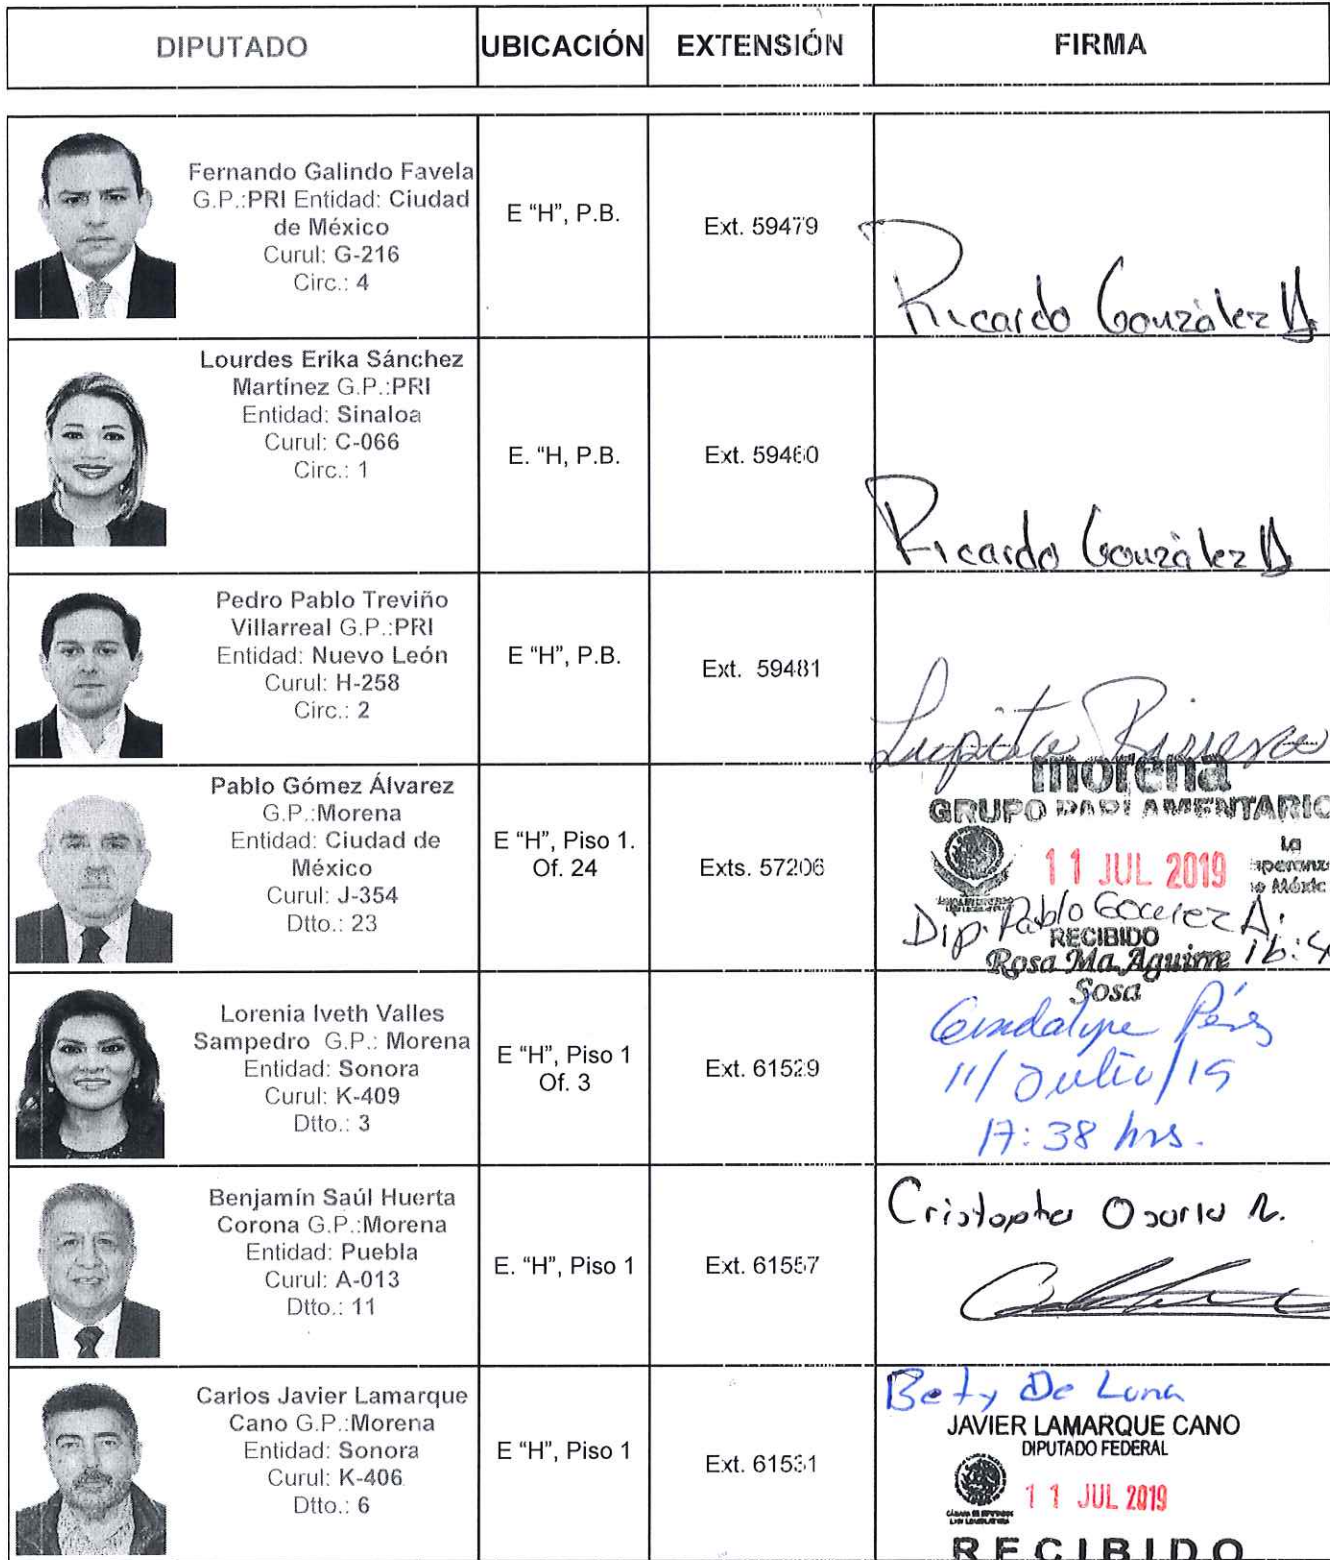 DIPUTADO UBICACIÓN EXTENSIÓN FIRMA
Fernando Galindo Favela
G.P.:PRI Entidad: Ciudad
de México
Curul: G-216
Circ.: 4
E "H", P.B.
Ext. 59479
Ricardo González
Lourdes Erika Sánchez
Martínez G.P.:PRI
Entidad: Sinaloa
Curul: C-066
Circ.: 1
E. "H, P.B.
Ext. 59460
Ricardo González
Pedro Pablo Treviño
Villarreal G.P.:PRI
Entidad: Nuevo León
Curul: H-258
Circ.: 2
E "H", P.B.
Ext. 59481
Lupita
Pablo Gómez Álvarez
G.P.:Morena
Entidad: Ciudad de
México
Curul: J-354
Dtto.: 23
E "H", Piso 1.
Of. 24
Exts. 57206
morena
GRUPO PARLAMENTARIO
La
11 JUL 2019
Dip. Pablo A.
RECIBIDO
Rosa Ma Aguirre
Sosa
Lorenia Iveth Valles
Sampedro G.P.: Morena
Entidad: Sonora
Curul: K-409
Dtto.: 3
E "H", Piso 1
Of. 3
Ext. 61529
Guadalupe Pérez
11/Julio/19
17:38 hrs.
Benjamín Saúl Huerta
Corona G.P.:Morena
Entidad: Puebla
Curul: A-013
Dtto.: 11
E. "H", Piso 1
Ext. 61557
Cristopher Osorio
Carlos Javier Lamarque
Cano G.P.:Morena
Entidad: Sonora
Curul: K-406
Dtto.: 6
E "H", Piso 1
Ext. 61531
Bety De Luna
JAVIER LAMARQUE CANO
DIPUTADO FEDERAL
11 JUL 2019
RECIBIDO